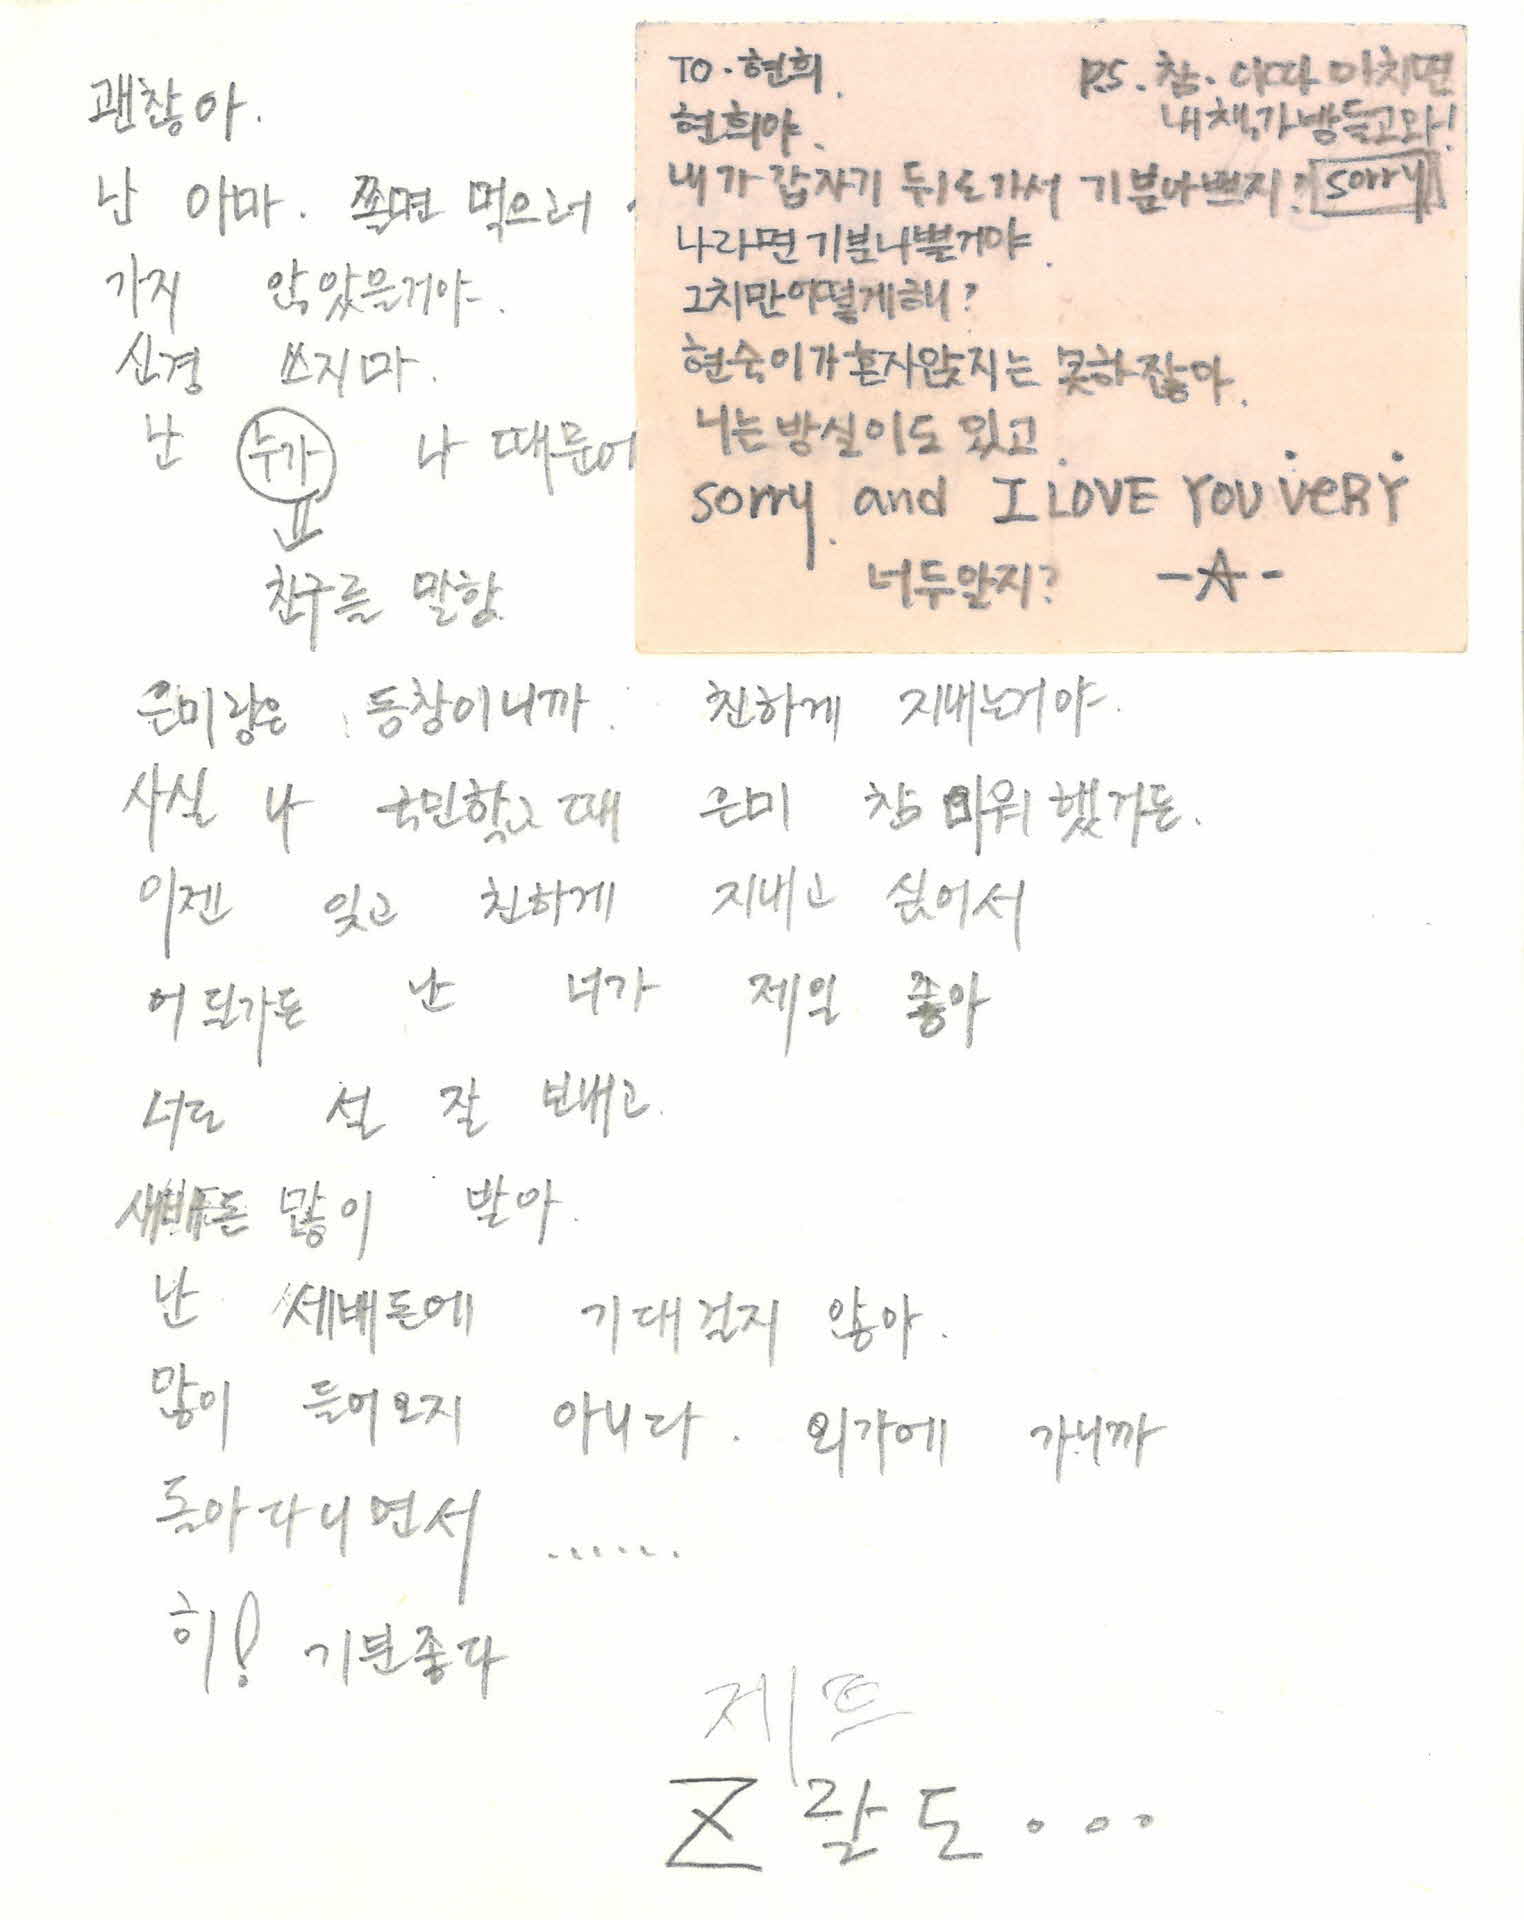 괜찮아.
난 아마. 쫄면 먹으러
가지 않았을거야.
신경 쓰지마.
난 누가 나 때문에
친구를 말함
은미랑은 동창이니까. 친하게 지내는거야.
사실 나 국민학교때 은미 참 미워했거든.
이젠 잊고 친하게 지내고 싶어서
어딜가든 난 너가 제일 좋아
너도 설 잘 보내고.
새배돈 많이 받아.
난 세배돈에 기대걸지 않아.
많이 들어오지 아니다. 외가에 가니까
돌아다니면서 ......
히! 기분좋다
제트
Z 랄도...
TO. 현희.
현희야.
내가 갑자기 뒤로가서 기분나쁘지? sorry
나라면 기분나쁠거야.
그치만어떻게해?
현숙이가 혼자앉지는 못하잖아.
너는방실이도 있고.
sorry. and I LOVE YOU VERY
너두알지? -☆-
P.S. 참. 이따 마치면
내책가방들고와!